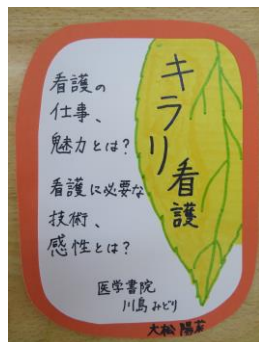 キラリ看護
看護の
仕事、
魅力とは?
看護に必要な
技術、
感性とは?
医学書院
川島みどり
大松 陽菜